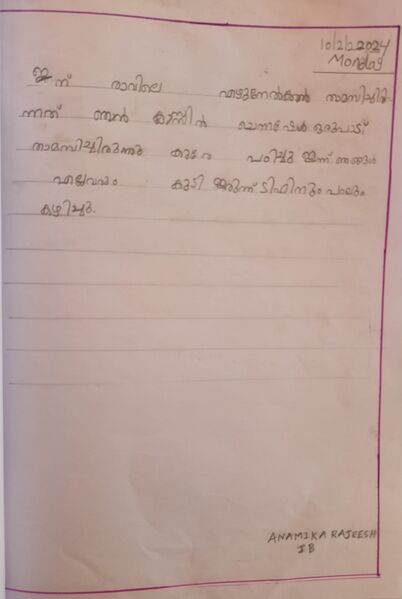 10/2/2024
Monday
ഇന്ന് രാവിലെ എഴുനേൽക്കാൻ താമസിച്ചിരു
ന്നത് ഞൻ ക്ലാസ്സിൽ ചെന്നപ്പേൾ ഒരുപാട്
താമസിച്ചിരുന്നു കുറേ പഠിച്ചു ഇന്ന് ഞങ്ങൾ
എല്ലവരും കൂടി ഇരുന്ന് ടിഫിനും പാലും
കുഴിച്ചു.
ANAMIKA RAJEESH
IB